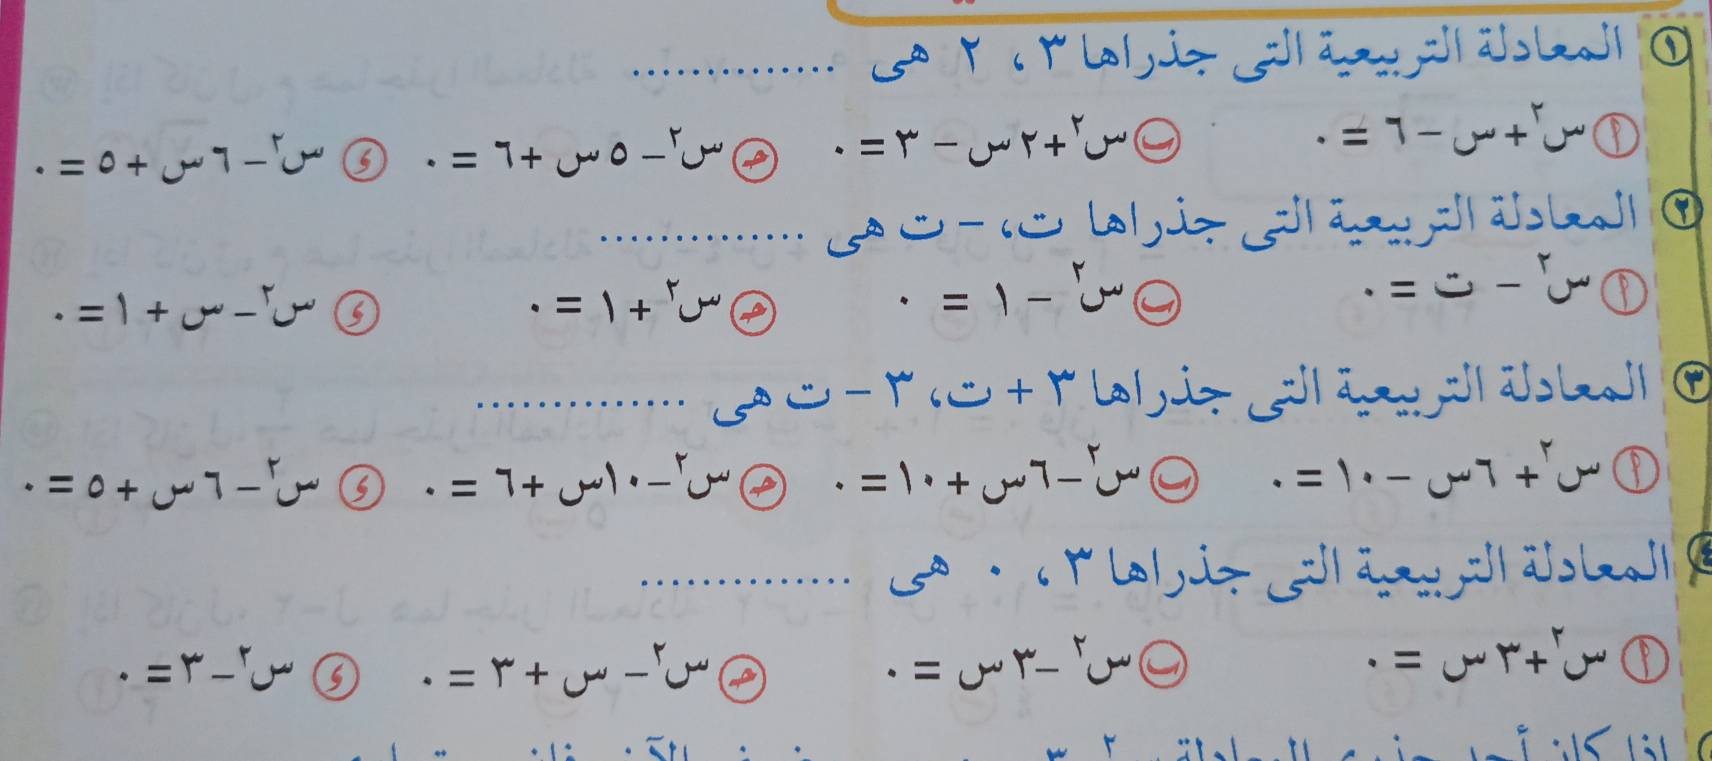 ١ المعادلة التربيعية التى جذراها ٣ ، ٢ هى ..............
أ س٢ + س – ٦ = ٠ ب س٢ + ٢ س – ٣ = ٠ ج س٢ – ٥ س + ٦ = ٠ د س٢ – ٦ س + ٥ = ٠
٢ المعادلة التربيعية التى جذراها ت ، – ت هى ..............
أ س٢ – ت = ٠ ب س٢ – ١ = ٠ ج س٢ + ١ = ٠ د س٢ – س + ١ = ٠
٣ المعادلة التربيعية التى جذراها ٣ + ت ، ٣ – ت هى ..............
أ س٢ + ٦ س – ١٠ = ٠ ب س٢ – ٦ س + ١٠ = ٠ ج س٢ – ١٠ س + ٦ = ٠ د س٢ – ٦ س + ٥ = ٠
٤ المعادلة التربيعية التى جذراها ٣ ، ٠ هى ..............
أ س٢ + ٣ س = ٠ ب س٢ – ٣ س = ٠ ج س٢ – س + ٣ = ٠ د س٢ – ٣ = ٠